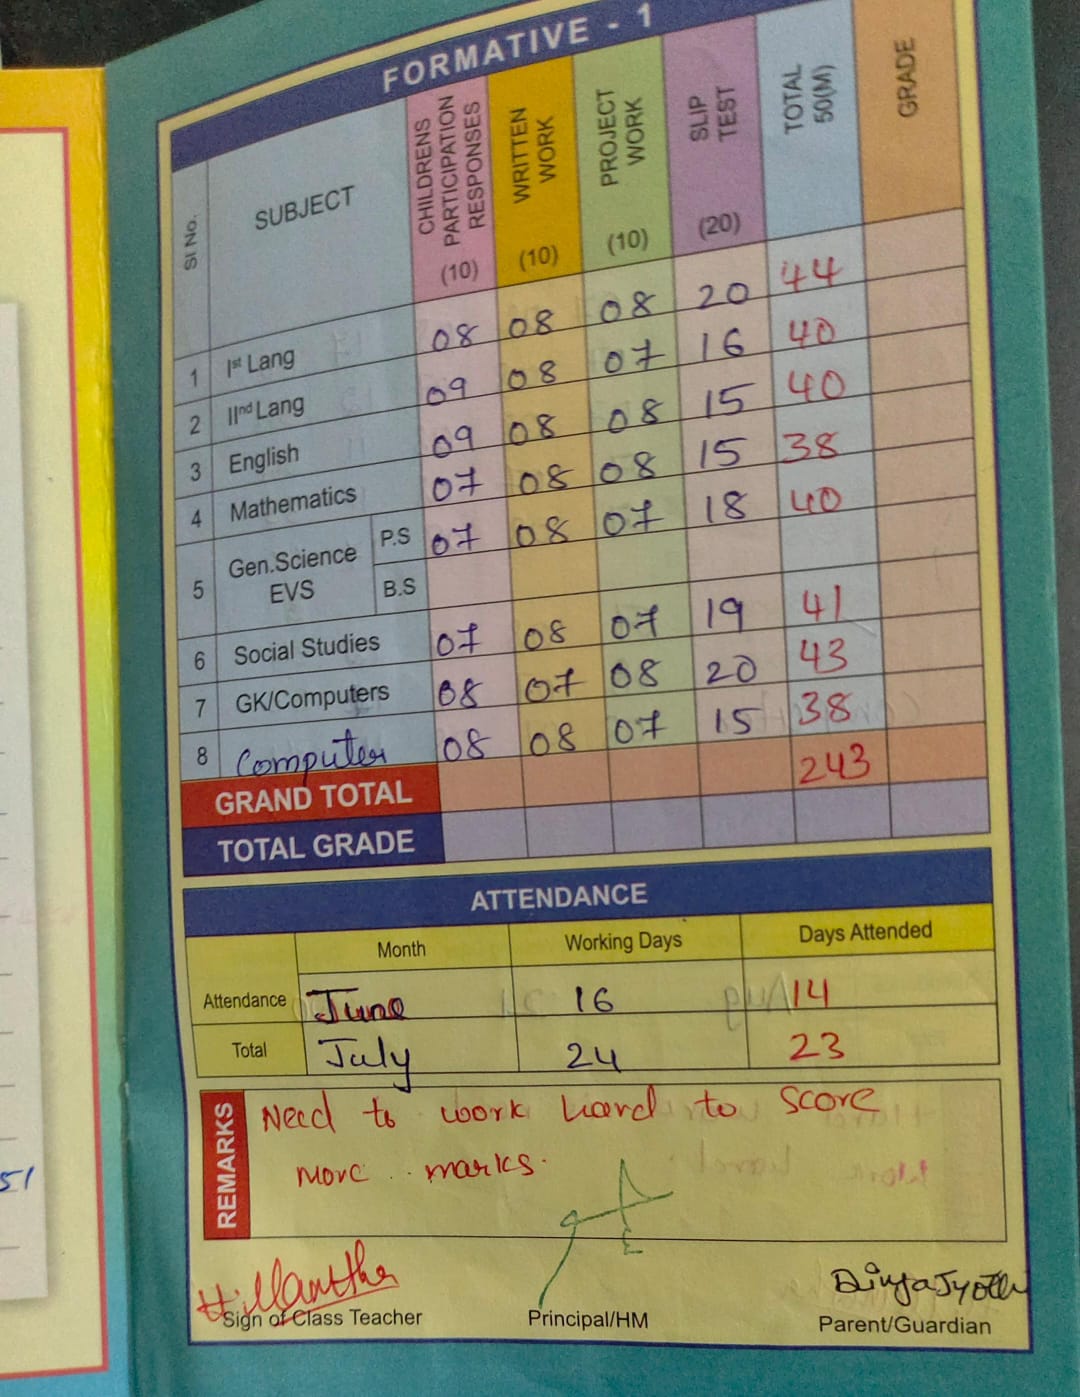 FORMATIVE - 1
Sl No. SUBJECT CHILDRENS PARTICIPATION RESPONSES (10) WRITTEN WORK (10) PROJECT WORK (10) SLIP TEST (20) TOTAL 50(M) GRADE
1 Ist Lang 08 08 08 20 44
2 IInd Lang 09 08 07 16 40
3 English 09 08 08 15 40
4 Mathematics 07 08 08 15 38
5 Gen.Science EVS P.S 07 08 07 18 40
B.S
6 Social Studies 07 08 07 19 41
7 GK/Computers 08 07 08 20 43
8 Computer 08 08 07 15 38
GRAND TOTAL 243
TOTAL GRADE
ATTENDANCE
Month Working Days Days Attended
Attendance June 16 14
Total July 24 23
REMARKS
Need to work hard to score
more marks.
51
Sign of Class Teacher Principal/HM Parent/Guardian